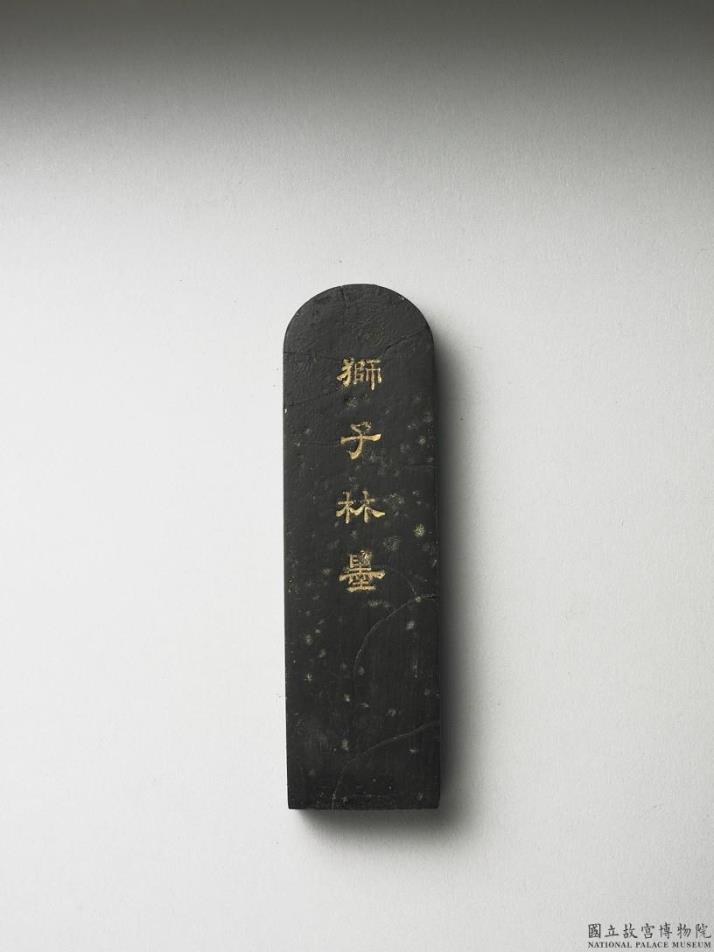 獅子林墨
國立故宮博物院
NATIONAL PALACE MUSEUM